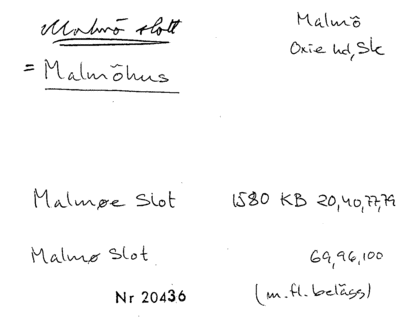 Malmö slott
Malmö
Oxie hd, Sk
= Malmöhus
Malmøe Slot 1580 KB 20,40,77,79
Malmø Slot 69,96,100
Nr 20436 (m.fl. belägg)